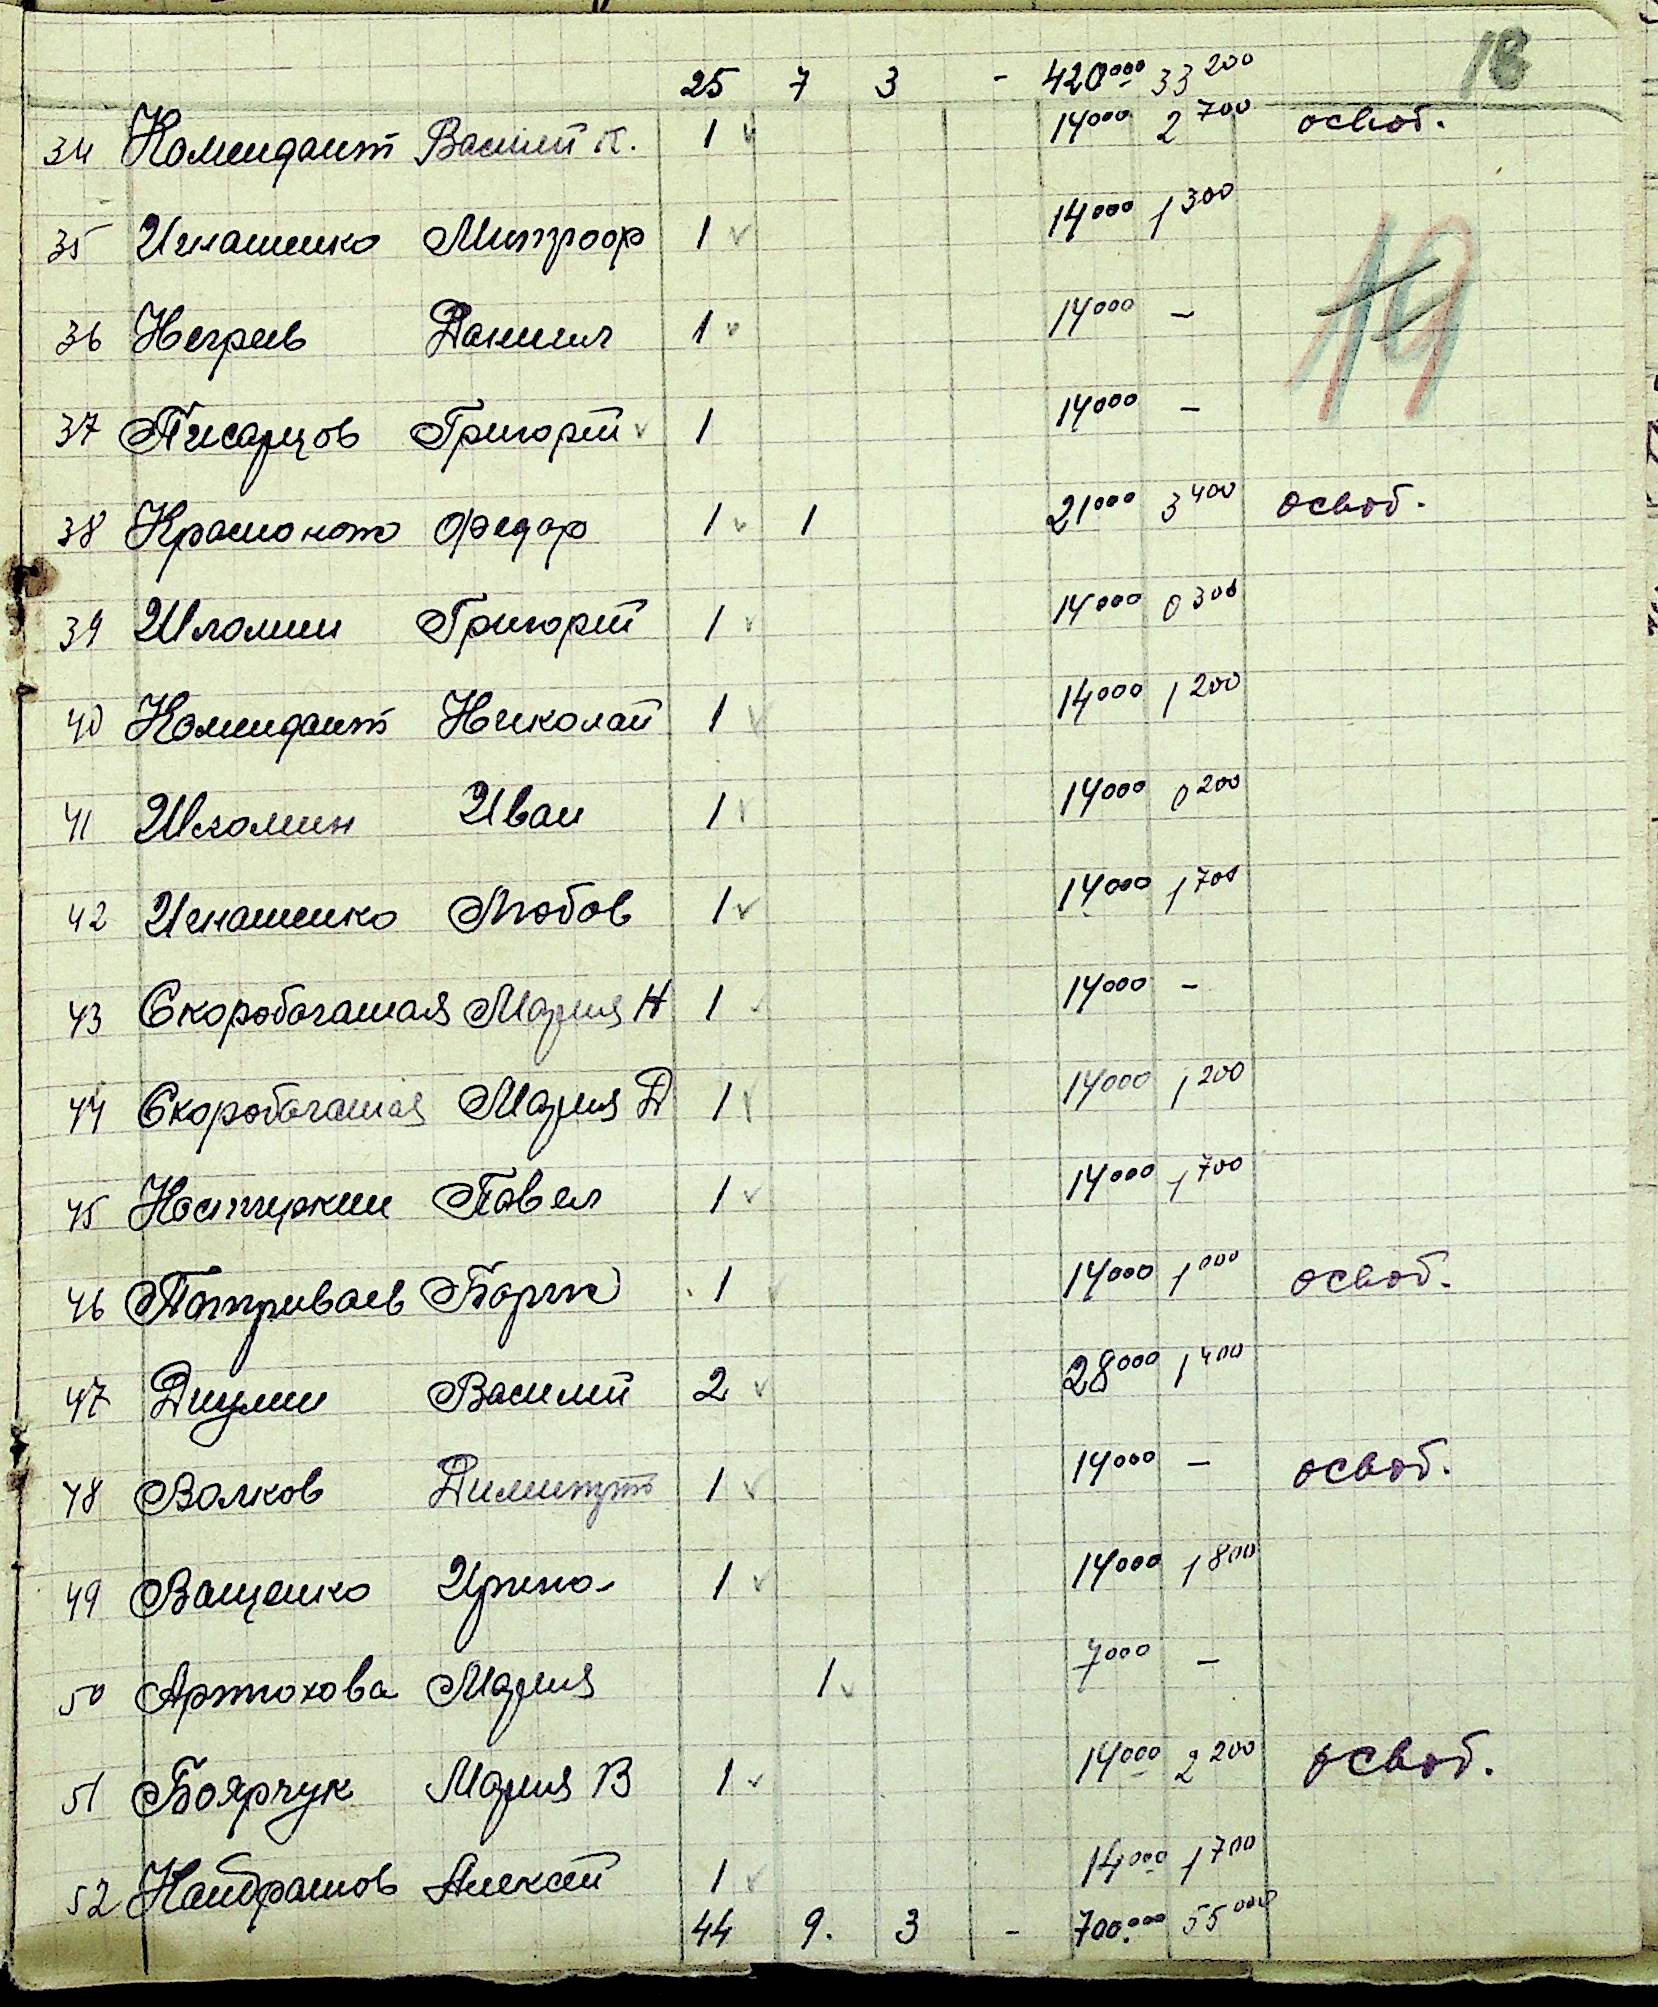 18
25 7 3 - 420000 33200
34 Комендант Василий К. 1 14000 2700 освоб.
35 Игнашенко Митроф 1 14000 1300
19
36 Негрев Даниил 1 14000 -
37 Писарцов Григорий 1 14000 -
38 Красножон Федор 1 1 21000 3400 освоб.
39 Шломин Григорий 1 14000 0300
40 Комендант Николай 1 14000 1200
41 Шломин Иван 1 14000 0200
42 Игнашенко Любов 1 14000 1700
43 Скоробогатая Мария Н 1 14000 -
44 Скоробогатая Мария Д 1 14000 1200
45 Настеркин Павел 1 14000 1700
46 Потриваев Борис 1 14000 1000 освоб.
47 Диулин Василий 2 28000 1400
48 Волков Димитрий 1 14000 - освоб.
49 Ващенко Ирина 1 14000 1800
50 Артюхова Мария 1 7000 -
51 Боярчук Мария В 1 14000 2200 освоб.
52 Кайдрашов Алексей 1 14000 1700
44 9. 3 - 700.000 55000